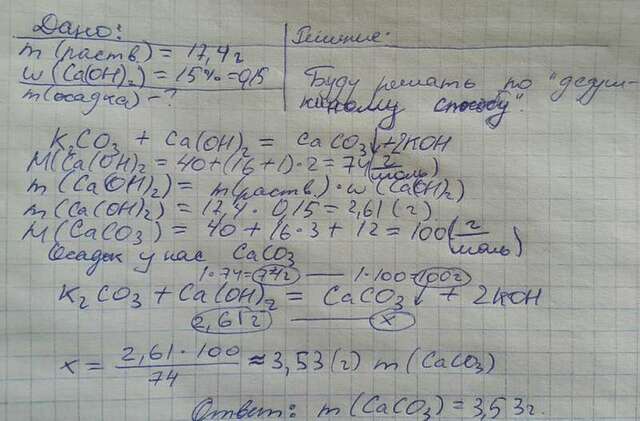 Дано:
m(раств.) = 17,4г
w(Ca(OH)₂) = 15% = 0,15
m(осадка) - ?
Решение:
Буду решать по "дедуш-
киному способу".
K₂CO₃ + Ca(OH)₂ = CaCO₃↓ + 2KOH
M(Ca(OH)₂ = 40 + (16 + 1) · 2 = 74 (г/моль)
m(Ca(OH)₂) = m(раств.) · w(Ca(OH)₂)
m(Ca(OH)₂) = 17,4 · 0,15 = 2,61 (г)
M(CaCO₃) = 40 + 16 · 3 + 12 = 100 (г/моль)
Осадок у нас CaCO₃
1·74=74г — 1·100=100г
K₂CO₃ + Ca(OH)₂ = CaCO₃↓ + 2KOH
2,61г — x
x = 2,61 · 100 / 74 ≈ 3,53 (г) m(CaCO₃)
Ответ: m(CaCO₃) = 3,53г.